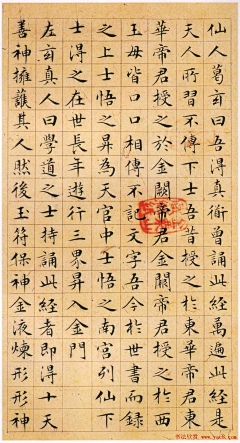 仙人葛玄曰吾得真衜曾誦此經萬遍此經是
天人所習不傳下士吾昔授之於東華帝君東
華帝君授之於金闕帝君金闕帝君授之於西
王母皆口口相傳不記文字吾今於世書而錄
之上士悟之昇為天官中士悟之南宮列仙下
士得之在世長年遊行三界昇入金門
左玄真人曰學道之士持誦此經者即得十天
善神擁護其人然後玉符保神金液煉形形神
书法欣赏
www.yac8.com